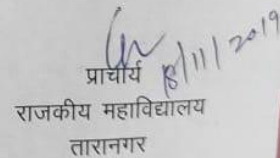 8/11/2019
प्राचार्य
राजकीय महाविद्यालय
तारानगर